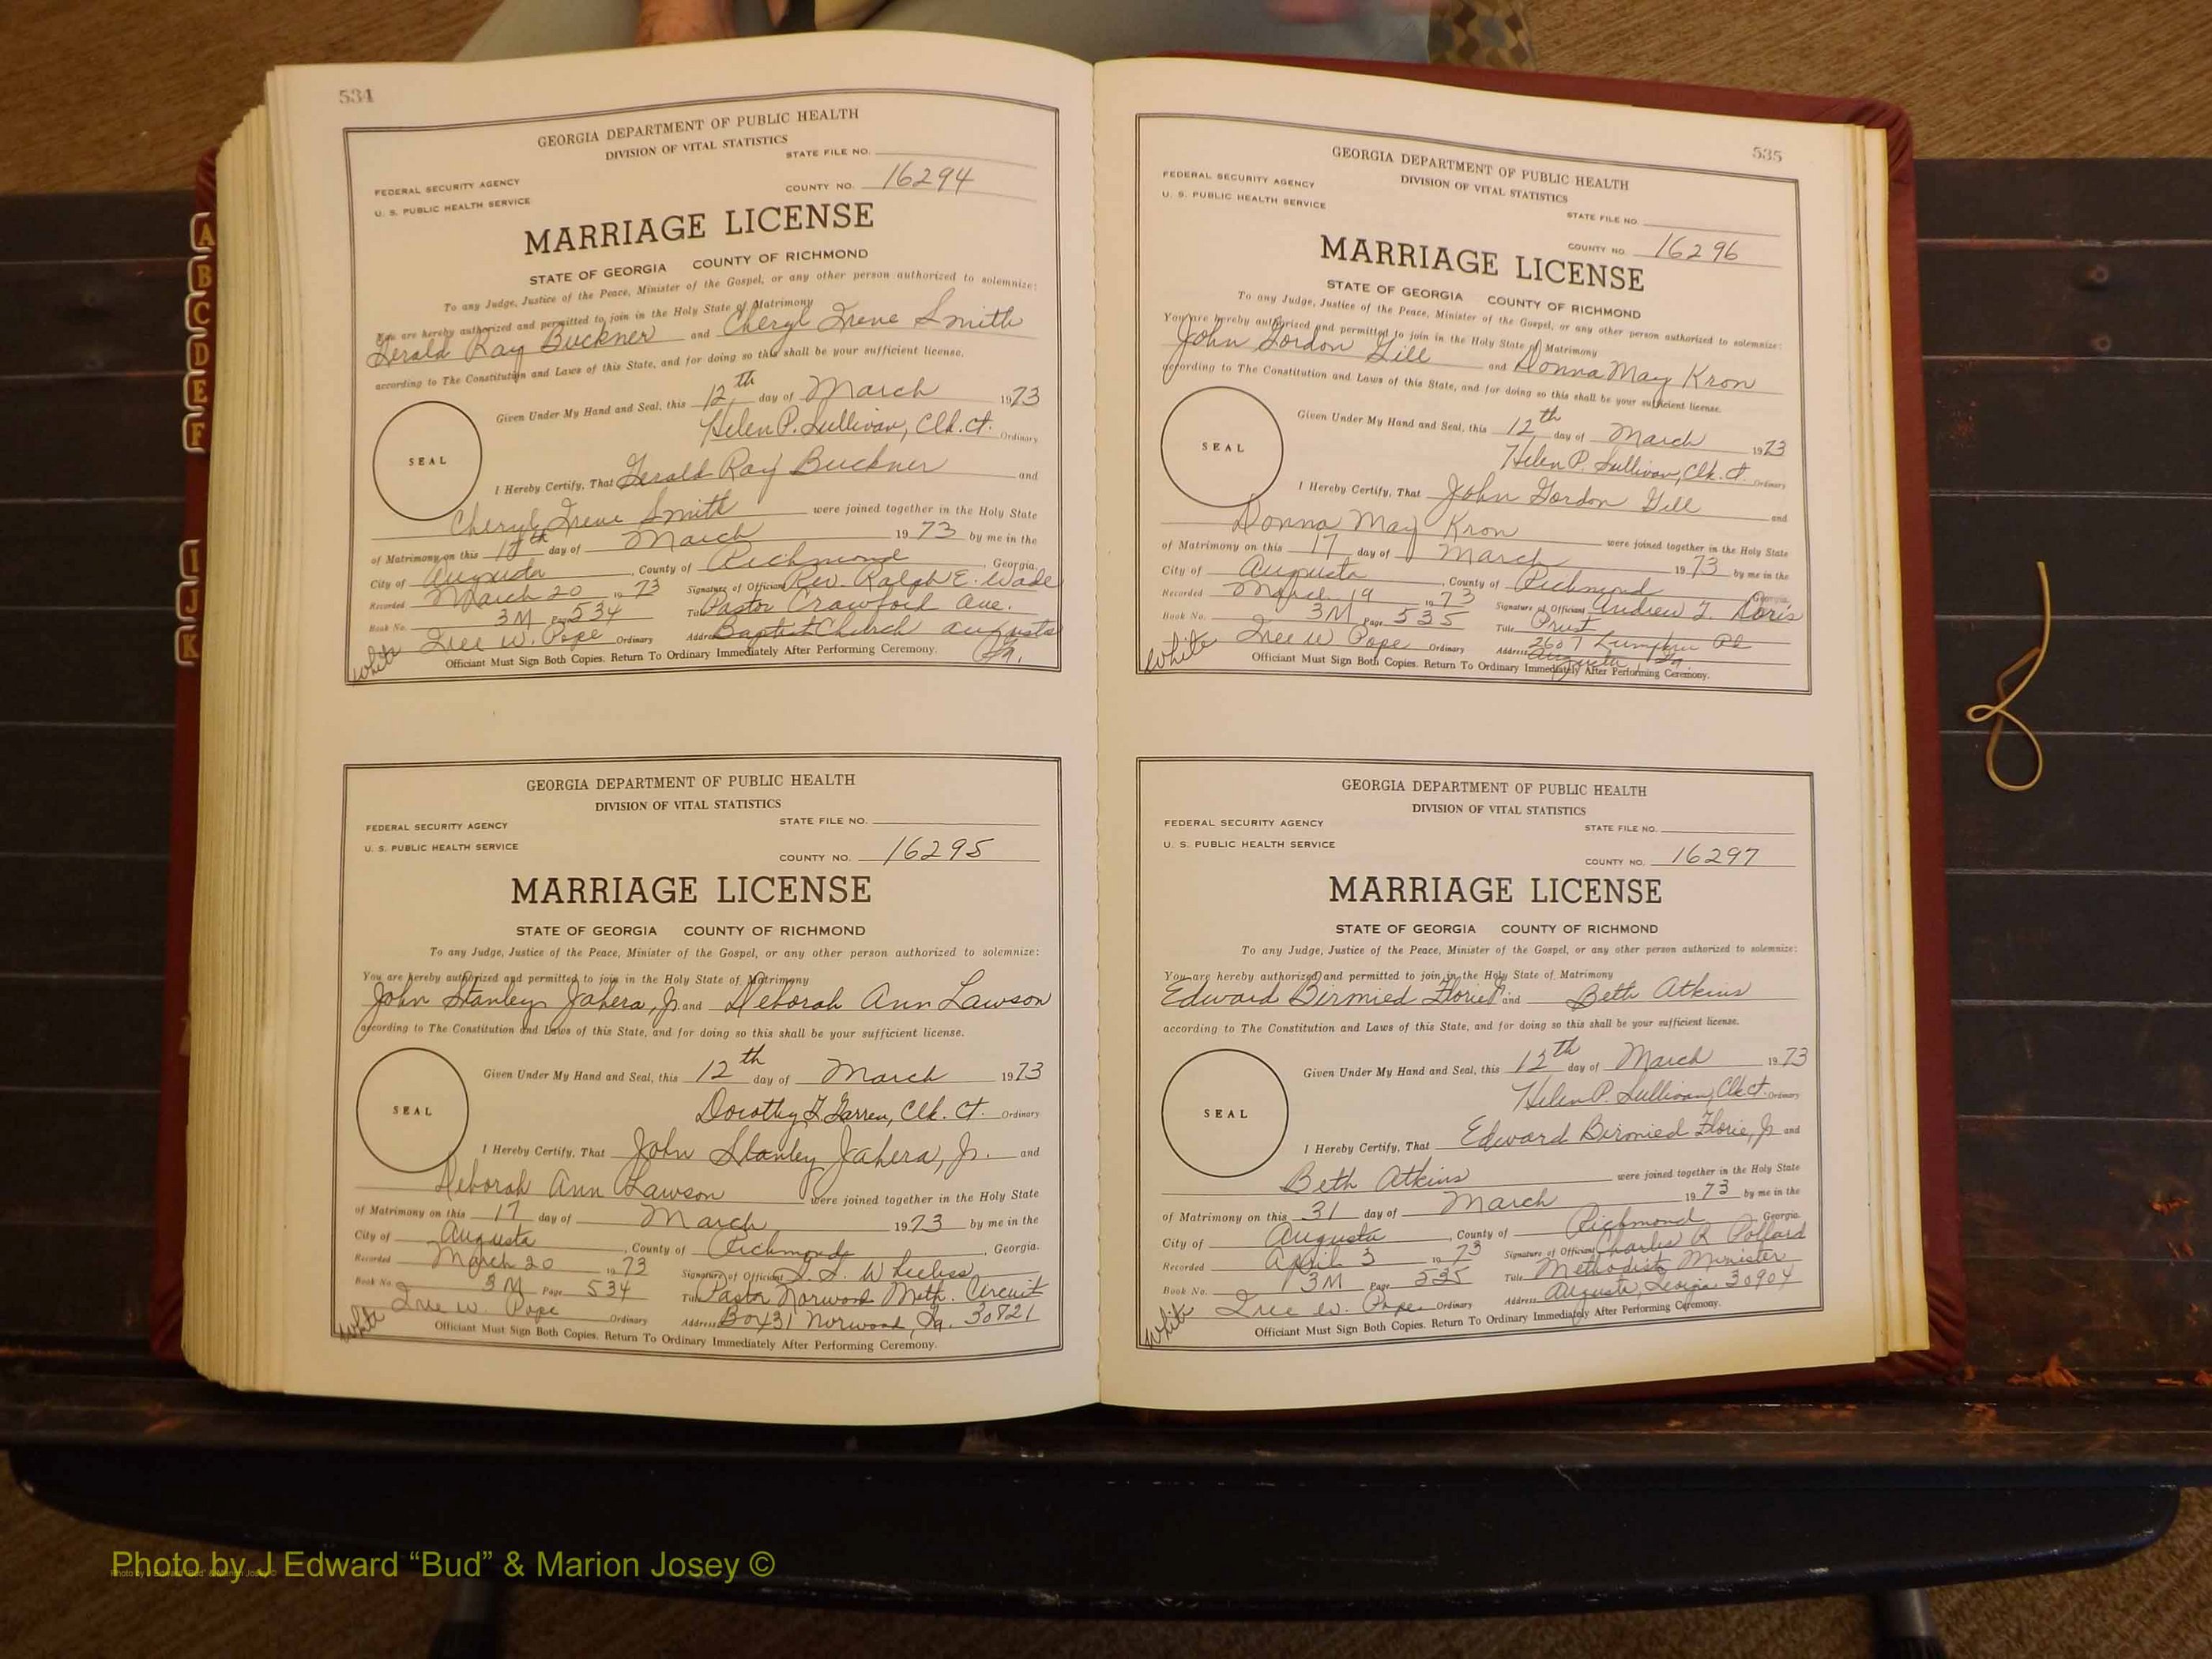 534
GEORGIA DEPARTMENT OF PUBLIC HEALTH
DIVISION OF VITAL STATISTICS
STATE FILE NO.
FEDERAL SECURITY AGENCY
COUNTY NO. 16294
U. S. PUBLIC HEALTH SERVICE
MARRIAGE LICENSE
STATE OF GEORGIA COUNTY OF RICHMOND
To any Judge, Justice of the Peace, Minister of the Gospel, or any other person authorized to solemnize:
You are hereby authorized and permitted to join in the Holy State of Matrimony
Gerald Ray Buckner and Cheryl Irene Smith
according to The Constitution and Laws of this State, and for doing so this shall be your sufficient license.
Given Under My Hand and Seal, this 12th day of March 1973
Helen P. Sullivan, Clk. Ct. Ordinary
SEAL
I Hereby Certify, That Gerald Ray Buckner and
Cheryl Irene Smith were joined together in the Holy State
of Matrimony on this day of March 1973 by me in the
City of Augusta, County of Richmond, Georgia.
Recorded March 20 1973 Signature of Officiant Rev. Ralph E. Wade
Book No. 3M Page 534 Title Pastor Crawford Ave.
W. Pope Ordinary Address Baptist Church Augusta
Ga.
White
Officiant Must Sign Both Copies. Return To Ordinary Immediately After Performing Ceremony.
GEORGIA DEPARTMENT OF PUBLIC HEALTH
DIVISION OF VITAL STATISTICS
STATE FILE NO.
FEDERAL SECURITY AGENCY
U. S. PUBLIC HEALTH SERVICE
COUNTY NO. 16295
MARRIAGE LICENSE
STATE OF GEORGIA COUNTY OF RICHMOND
To any Judge, Justice of the Peace, Minister of the Gospel, or any other person authorized to solemnize:
You are hereby authorized and permitted to join in the Holy State of Matrimony
John Stanley Jahera, Jr. and Deborah Ann Lawson
according to The Constitution and Laws of this State, and for doing so this shall be your sufficient license.
Given Under My Hand and Seal, this 12th day of March 1973
Dorothy Garren, Clk. Ct. Ordinary
SEAL
I Hereby Certify, That John Stanley Jahera, Jr. and
Deborah Ann Lawson were joined together in the Holy State
of Matrimony on this 17 day of March 1973 by me in the
City of Augusta, County of Richmond, Georgia.
Recorded March 20 1973 Signature of Officiant Wheeless
Book No. 3M Page 534 Title Pastor Norwood Meth. Circuit
W. Pope Ordinary Address Box 31 Norwood, Ga. 30821
White
Officiant Must Sign Both Copies. Return To Ordinary Immediately After Performing Ceremony.
535
GEORGIA DEPARTMENT OF PUBLIC HEALTH
DIVISION OF VITAL STATISTICS
FEDERAL SECURITY AGENCY
U. S. PUBLIC HEALTH SERVICE
STATE FILE NO.
COUNTY NO. 16296
MARRIAGE LICENSE
STATE OF GEORGIA COUNTY OF RICHMOND
To any Judge, Justice of the Peace, Minister of the Gospel, or any other person authorized to solemnize:
You are hereby authorized and permitted to join in the Holy State of Matrimony
John Gordon Gill and Donna May Kron
according to The Constitution and Laws of this State, and for doing so this shall be your sufficient license.
Given Under My Hand and Seal, this 12th day of March 1973
Helen P. Sullivan, Clk. Ct. Ordinary
SEAL
I Hereby Certify, That John Gordon Gill and
Donna May Kron were joined together in the Holy State
of Matrimony on this 17 day of March 1973 by me in the
City of Augusta, County of Richmond Georgia.
Recorded March 19 1973 Signature of Officiant Andrew J. Doris
Book No. 3M Page 535 Title Priest
W Pope Ordinary Address 2607 Lumpkin
Augusta, Ga.
White
Officiant Must Sign Both Copies. Return To Ordinary Immediately After Performing Ceremony.
GEORGIA DEPARTMENT OF PUBLIC HEALTH
DIVISION OF VITAL STATISTICS
FEDERAL SECURITY AGENCY
STATE FILE NO.
U. S. PUBLIC HEALTH SERVICE
COUNTY NO. 16297
MARRIAGE LICENSE
STATE OF GEORGIA COUNTY OF RICHMOND
To any Judge, Justice of the Peace, Minister of the Gospel, or any other person authorized to solemnize:
You are hereby authorized and permitted to join in the Holy State of Matrimony
Edward Birmied Florie and Beth Atkins
according to The Constitution and Laws of this State, and for doing so this shall be your sufficient license.
Given Under My Hand and Seal, this 12th day of March 1973
Helen P. Sullivan, Clk Ct. Ordinary
SEAL
I Hereby Certify, That Edward Birmied Florie, Jr and
Beth Atkins were joined together in the Holy State
of Matrimony on this 31 day of March 1973 by me in the
City of Augusta, County of Richmond, Georgia.
Recorded April 3 1973 Signature of Officiant Charles R Pollard
Book No. 3M Page 535 Title Methodist Minister
W. Pope Ordinary Address Augusta, Georgia 30904
White
Officiant Must Sign Both Copies. Return To Ordinary Immediately After Performing Ceremony.
A
B
C
D
E
F
I
J
K
Photo by J Edward “Bud” & Marion Josey ©